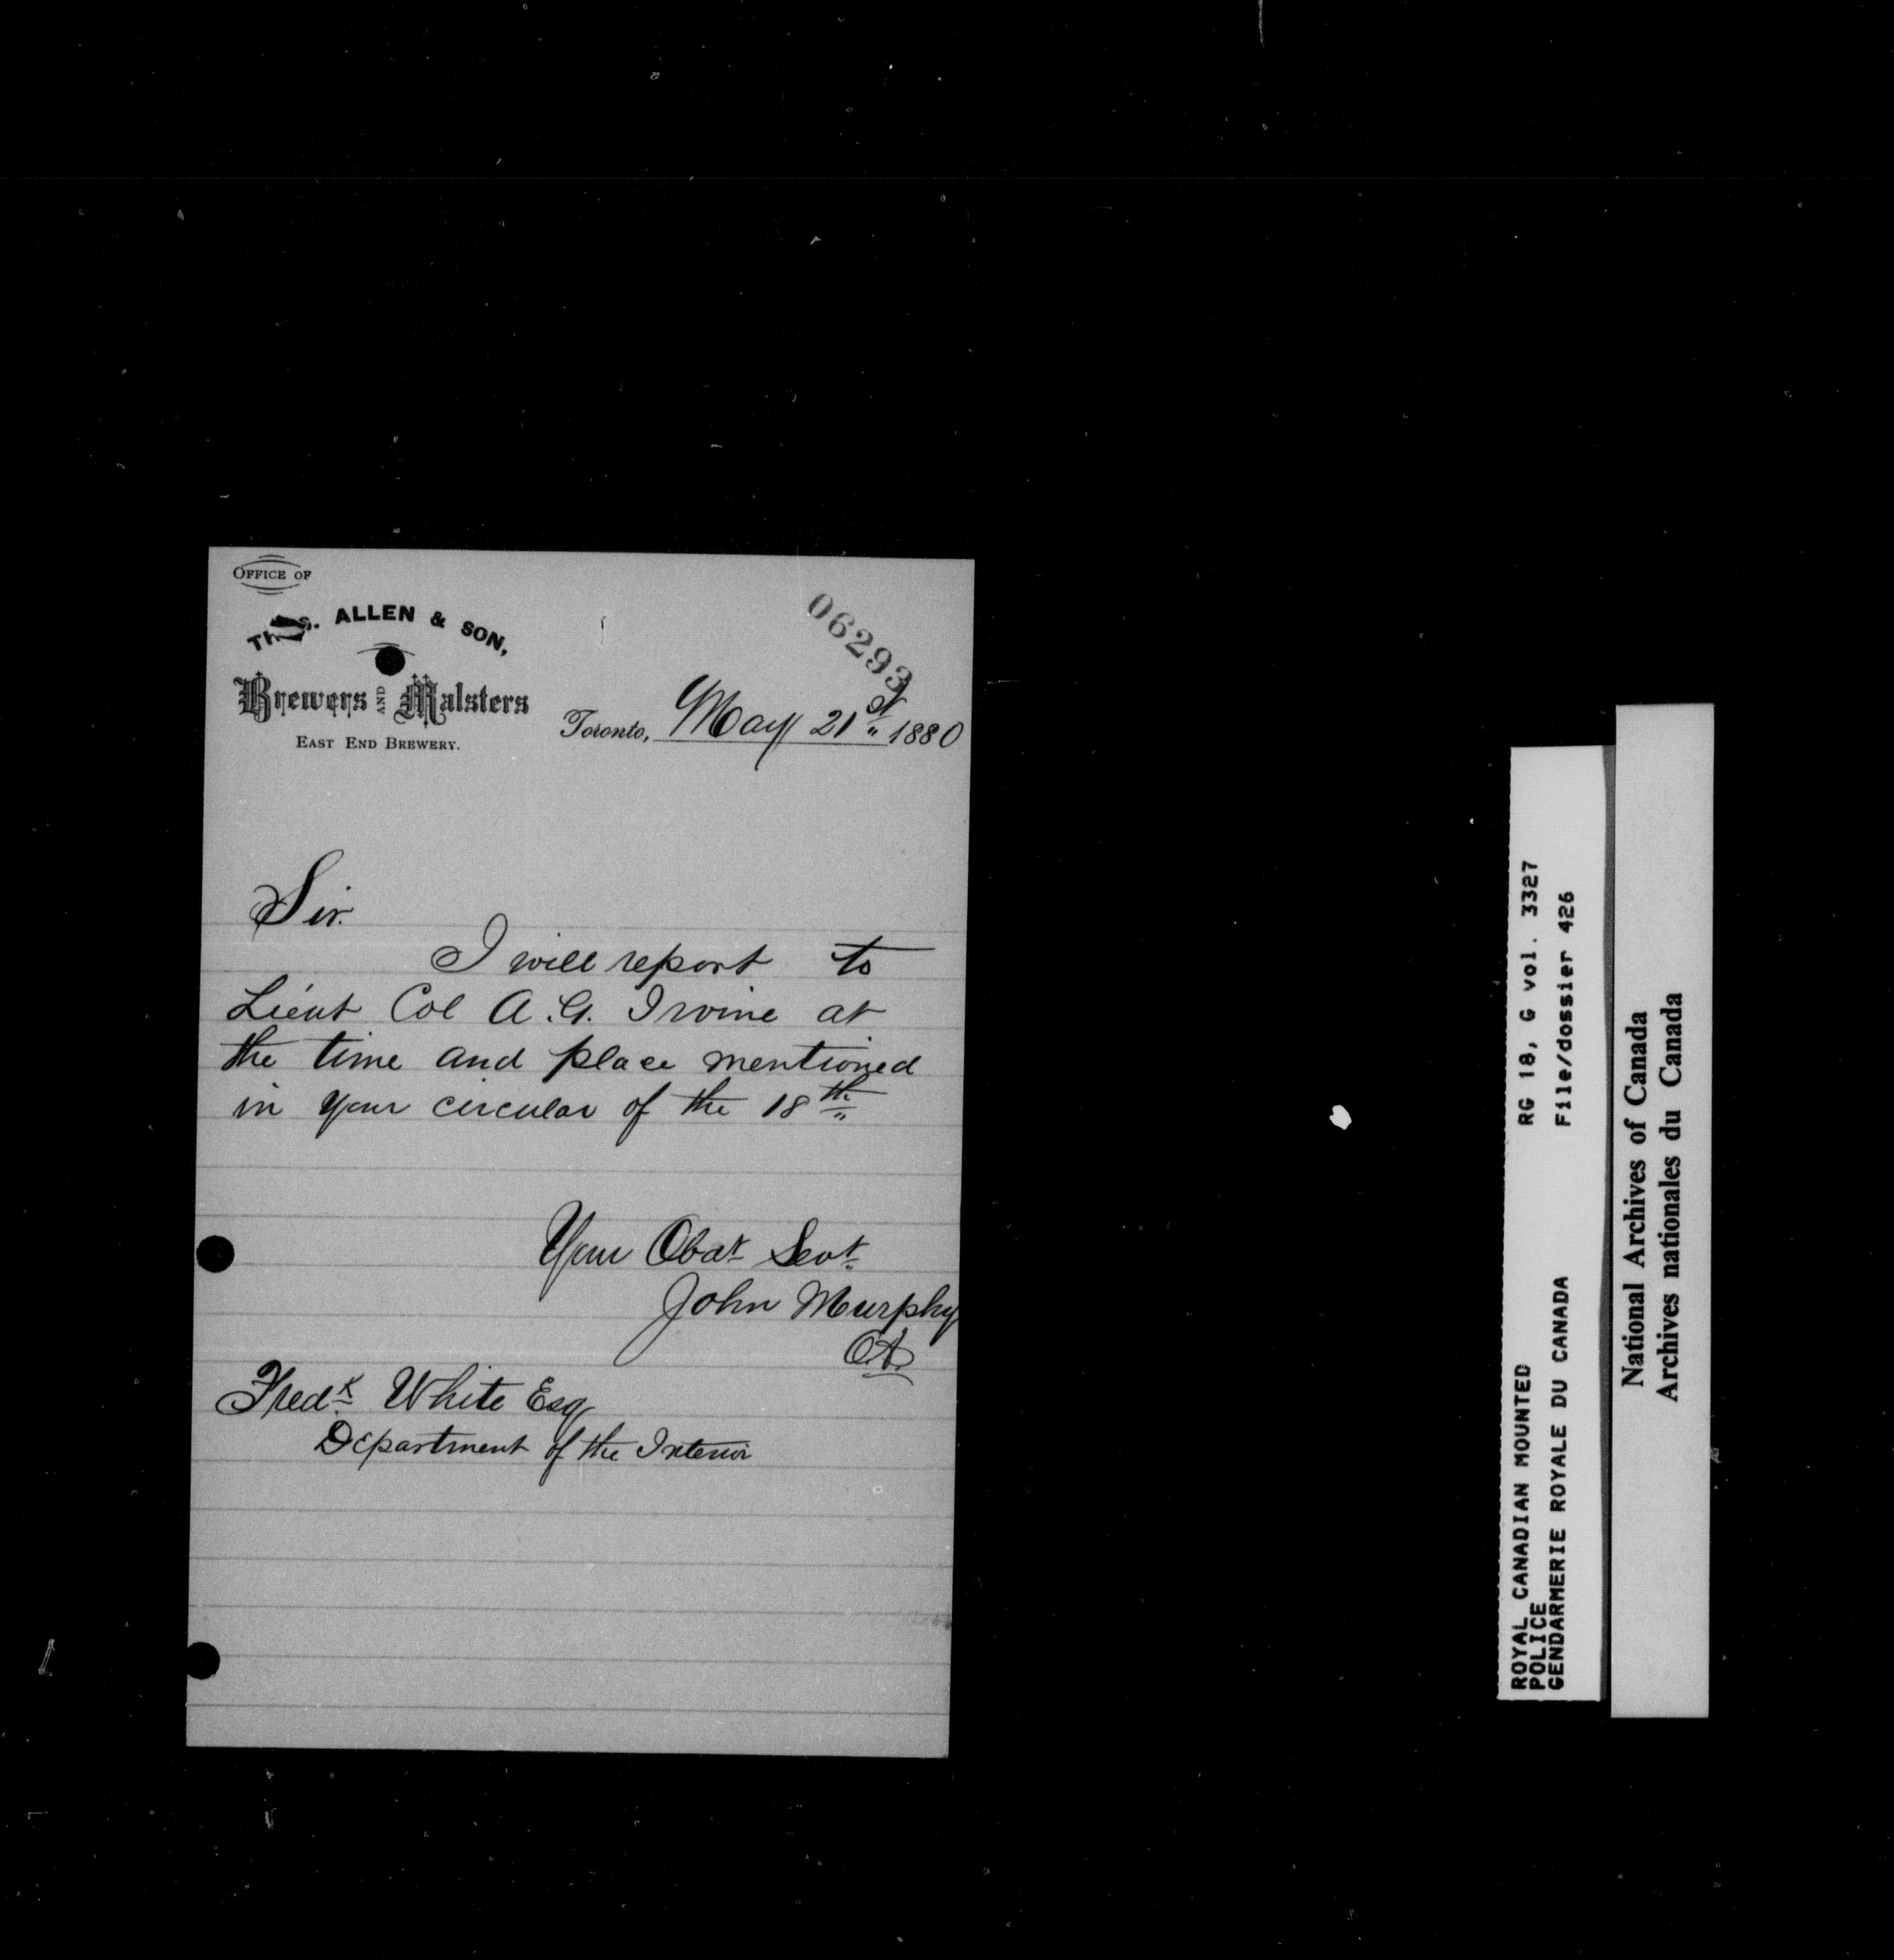 OFFICE OF
THOS. ALLEN & SON,
Brewers AND Malsters
EAST END BREWERY.
06293
Toronto, May 21st 1880
Sir.
I will report to
Lieut Col A. G. Irvine at
the time and place mentioned
in your circular of the 18th
Your Obdt Servt.
John Murphy
Fredk White Esq
Department of the Interior
ROYAL CANADIAN MOUNTED RG 18, G vol. 3327
POLICE
GENDARMERIE ROYALE DU CANADA File/dossier 426
National Archives of Canada
Archives nationales du Canada